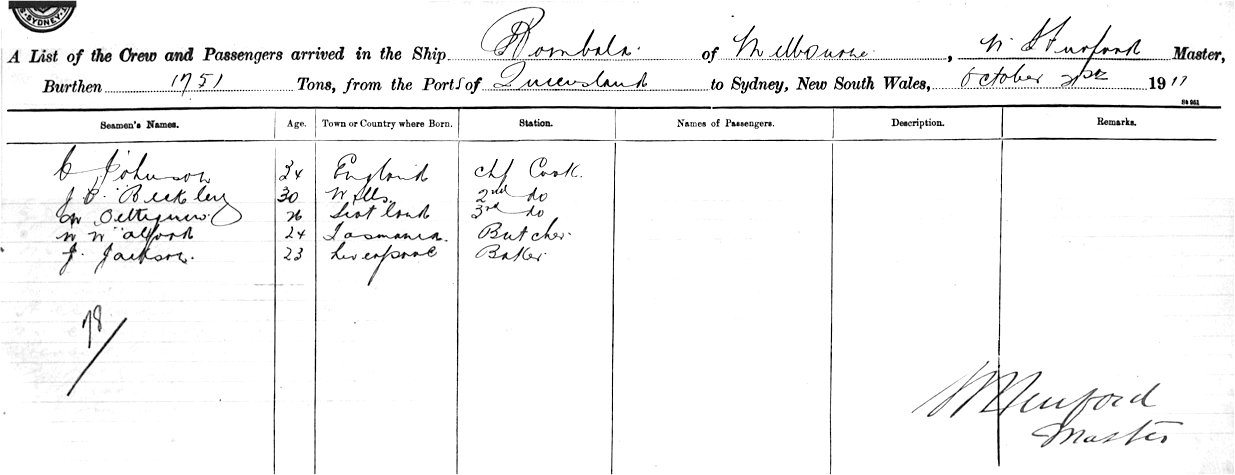 SYDNEY
A List of the Crew and Passengers arrived in the Ship Bombala of Melbourne, Master,
Burthen 1751 Tons, from the Ports of Queensland to Sydney, New South Wales, October 21st 1911
Seamen's Names. Age. Town or Country where Born. Station. Names of Passengers. Description. Remarks.
C Johnson 34 England chf Cook.
J B Beckley 30 2nd do
W Pettigrew 26 Scotland 3rd do
W Walford 24 Tasmania. Butcher
J. Jackson. 23 Liverpool Baker
78
Master